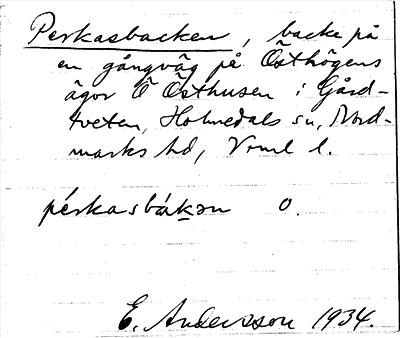 Perkasbacken, backe på
en gångväg på Östhögens
ägor Ö Östhusen i Gård-
tveten, Holmedals sn, Nord-
marks hd, Vrml l.
pérkasbákən O.
E. Andersson 1934.